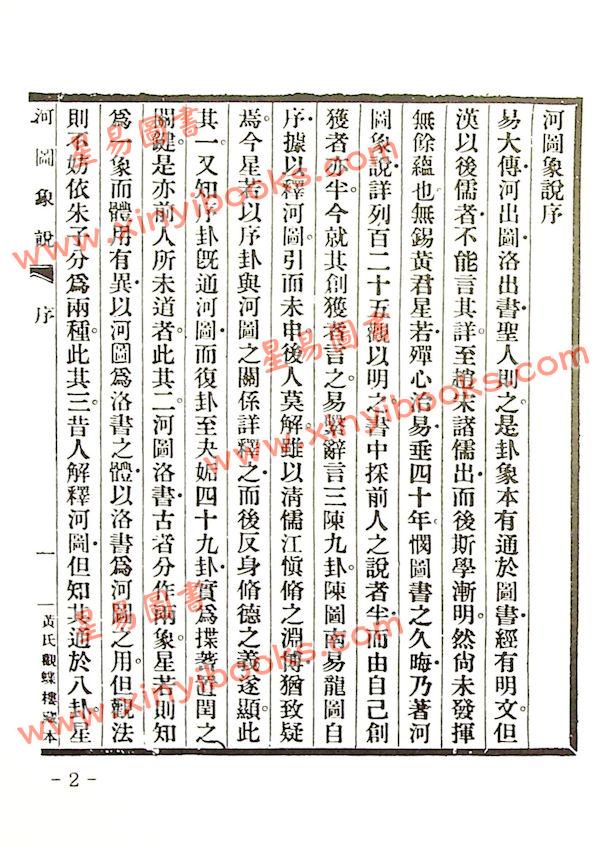 河圖象說序
易大傳河出圖洛出書聖人則之是卦象本有通於圖書經有明文但
漢以後儒者不能言其詳至趙宋諸儒出而後斯學漸明然尙未發揮
無餘蘊也無錫黃君星若殫心治易垂四十年憫圖書之久晦乃著河
圖象說詳列百二十五觀以明之書中採前人之說者半而由自己創
獲者亦半今就其創獲者言之易繫辭言三陳九卦陳圖南易龍圖自
序據以釋河圖引而未申後人莫解雖以清儒江愼脩之淵博猶致疑
焉今星若以序卦與河圖之關係詳釋之而後反身脩德之義遂顯此
其一又知序卦既通河圖而復卦至夬姤四十九卦實爲揲蓍置閏之
關鍵是亦前人所未道者此其二河圖洛書古者分作兩象星若則知
爲一象而體用有異以河圖爲洛書之體以洛書爲河圖之用但觀法
則不妨依朱子分爲兩種此其三昔人解釋河圖但知其通於八卦星
河圖象說 序 一 黃氏觀蝶樓藏本
- 2 -
星易圖書
www.xinyibooks.com
星易圖書
www.xinyibooks.com
星易圖書
www.xinyibooks.com